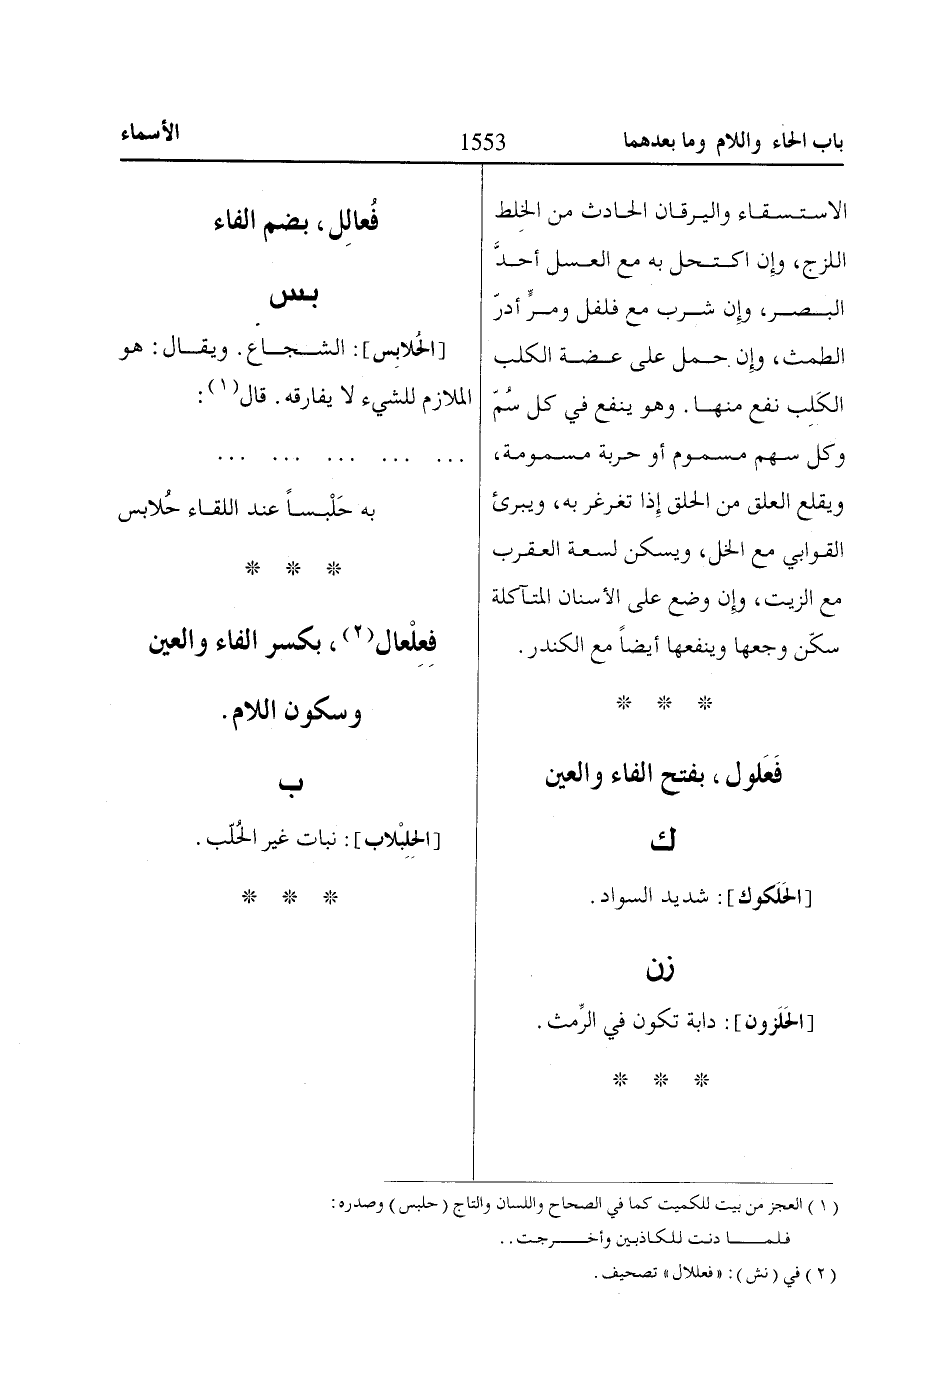 باب الحاء واللام وما بعدهما
1553
الأسماء
الاستسقاء واليرقان الحادث من الخِلط
اللزج، وإن اكتحل به مع العسل أحدَّ
البصر، وإن شرب مع فلفل ومرٍّ أدرّ
الطمث، وإن حمل على عضة الكلب
الكَلِب نفع منها. وهو ينفع في كل سُمّ
وكل سهم مسموم أو حربة مسمومة،
ويقلع العلق من الحلق إذا تغرغر به، ويبرئ
القوابي مع الخل، ويسكن لسعة العقرب
مع الزيت، وإن وضع على الأسنان المتآكلة
سكّن وجعها وينفعها أيضاً مع الكندر.
* * *
فَعَلول، بفتح الفاء والعين
ك
[الحَلَكوك]: شديد السواد.
زن
[الحَلَزون]: دابة تكون في الرِّمث.
* * *
فُعالِل، بضم الفاء
بس
[الحُلابِس]: الشجاع. ويقال: هو
الملازم للشيء لا يفارقه. قال(١):
... ... ... ... ...
به حَلْبساً عند اللقاء حُلابس
* * *
فِعِلْعال(٢)، بكسر الفاء والعين
وسكون اللام.
ب
[الحِلِبْلاب]: نبات غير الحُلّب.
* * *
(١) العجز من بيت للكميت كما في الصحاح واللسان والتاج (حلبس) وصدره:
فلما دنت للكاذبين وأخرجت..
(٢) في (نش): «فعللال» تصحيف.